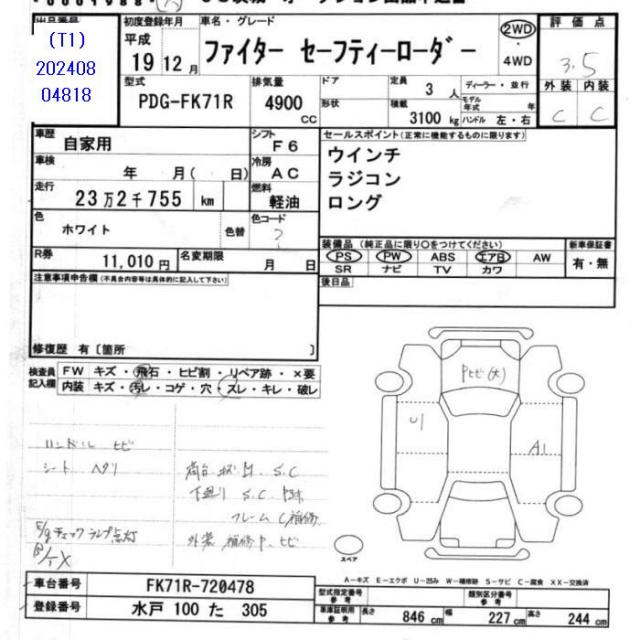 (T1)
202408
04818
初度登録年月
平成
19年12月
車名・グレード
ファイター セーフティーローダー
2WD
4WD
評価点
3.5
外装 内装
C C
型式
PDG-FK71R
排気量
4900 CC
ドア
形状
定員 3人
積載 3100 kg
ディーラー・並行
モデル年式 年
ハンドル 左・右
車歴
自家用
シフト
F6
車検
年 月( 日)
冷房
AC
走行
23万2千755 km
燃料
軽油
色
ホワイト
色替
色コード
?
R券
11,010円
名変期限
月 日
セールスポイント(正常に機能するものに限ります)
ウインチ
ラジコン
ロング
装備品(純正品に限り○をつけてください)
PS PW ABS エアB AW
SR ナビ TV カワ
新車保証書
有・無
後日品
注意事項申告欄(不具合内容等は具体的に記入して下さい)
修復歴 有〔箇所 〕
検査員記入欄
FW キズ・飛石・ヒビ割・リペア跡・×要
内装 キズ・汚レ・コゲ・穴・スレ・キレ・破レ
ハンドル ヒビ
シート ヘタリ
荷台 S.C
下廻り S.C
フレーム C 補修
E/gチェックランプ点灯
外装 補修P. ヒビ
U1
A1
スペア
A-キズ E-エクボ U-凹み W-補修跡 S-サビ C-腐食 XX-交換済
車台番号
FK71R-720478
登録番号
水戸 100 た 305
型式指定番号 参考
類別区分番号 参考
車庫証明用 参考
長さ 846 cm 幅 227 cm 高さ 244 cm